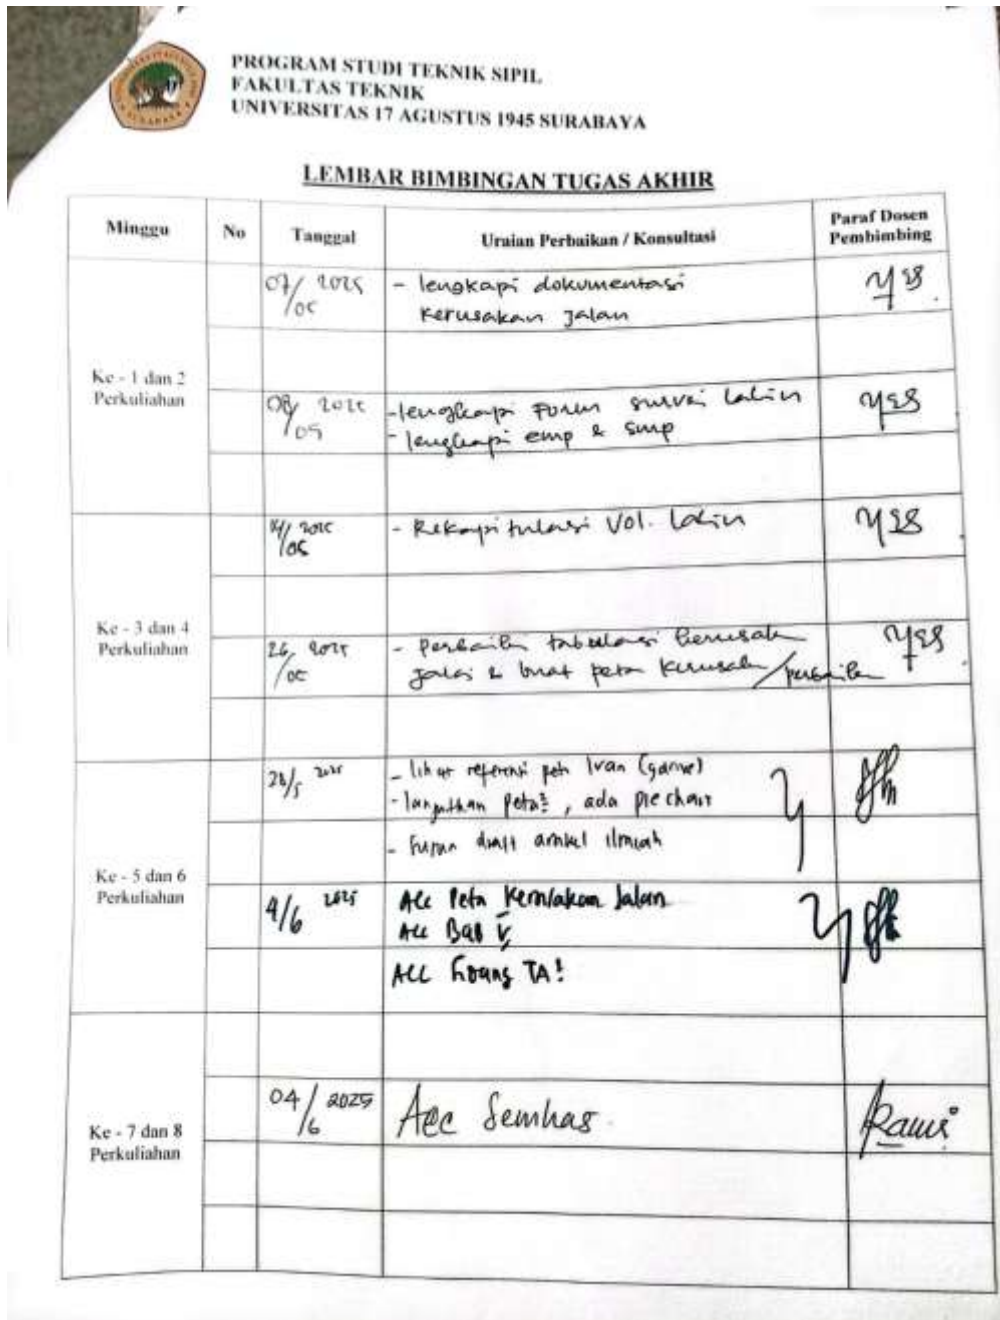 PROGRAM STUDI TEKNIK SIPIL
FAKULTAS TEKNIK
UNIVERSITAS 17 AGUSTUS 1945 SURABAYA
LEMBAR BIMBINGAN TUGAS AKHIR
Minggu No Tanggal Uraian Perbaikan / Konsultasi Paraf Dosen
Pembimbing
Ke - 1 dan 2
Perkuliahan
07/05 2025 - lengkapi dokumentasi
kerusakan jalan
08/05 2025 - lengkapi Form survai lalin
- lengkapi emp & smp
Ke - 3 dan 4
Perkuliahan
14/05 2025 - Rekapitulasi Vol. lalin
26/05 2025 - perbaiki tabulasi kerusakan
jalan & buat peta kerusakan/perbaikan
Ke - 5 dan 6
Perkuliahan
28/5 2025 - lihat referensi Ivan
- lanjutkan peta², ada pie chart
- draft artikel ilmiah
4/6 2025 Acc Peta Kerusakan Jalan
Acc Bab V
Acc TA!
Ke - 7 dan 8
Perkuliahan
04/6 2025 Acc Semhas.